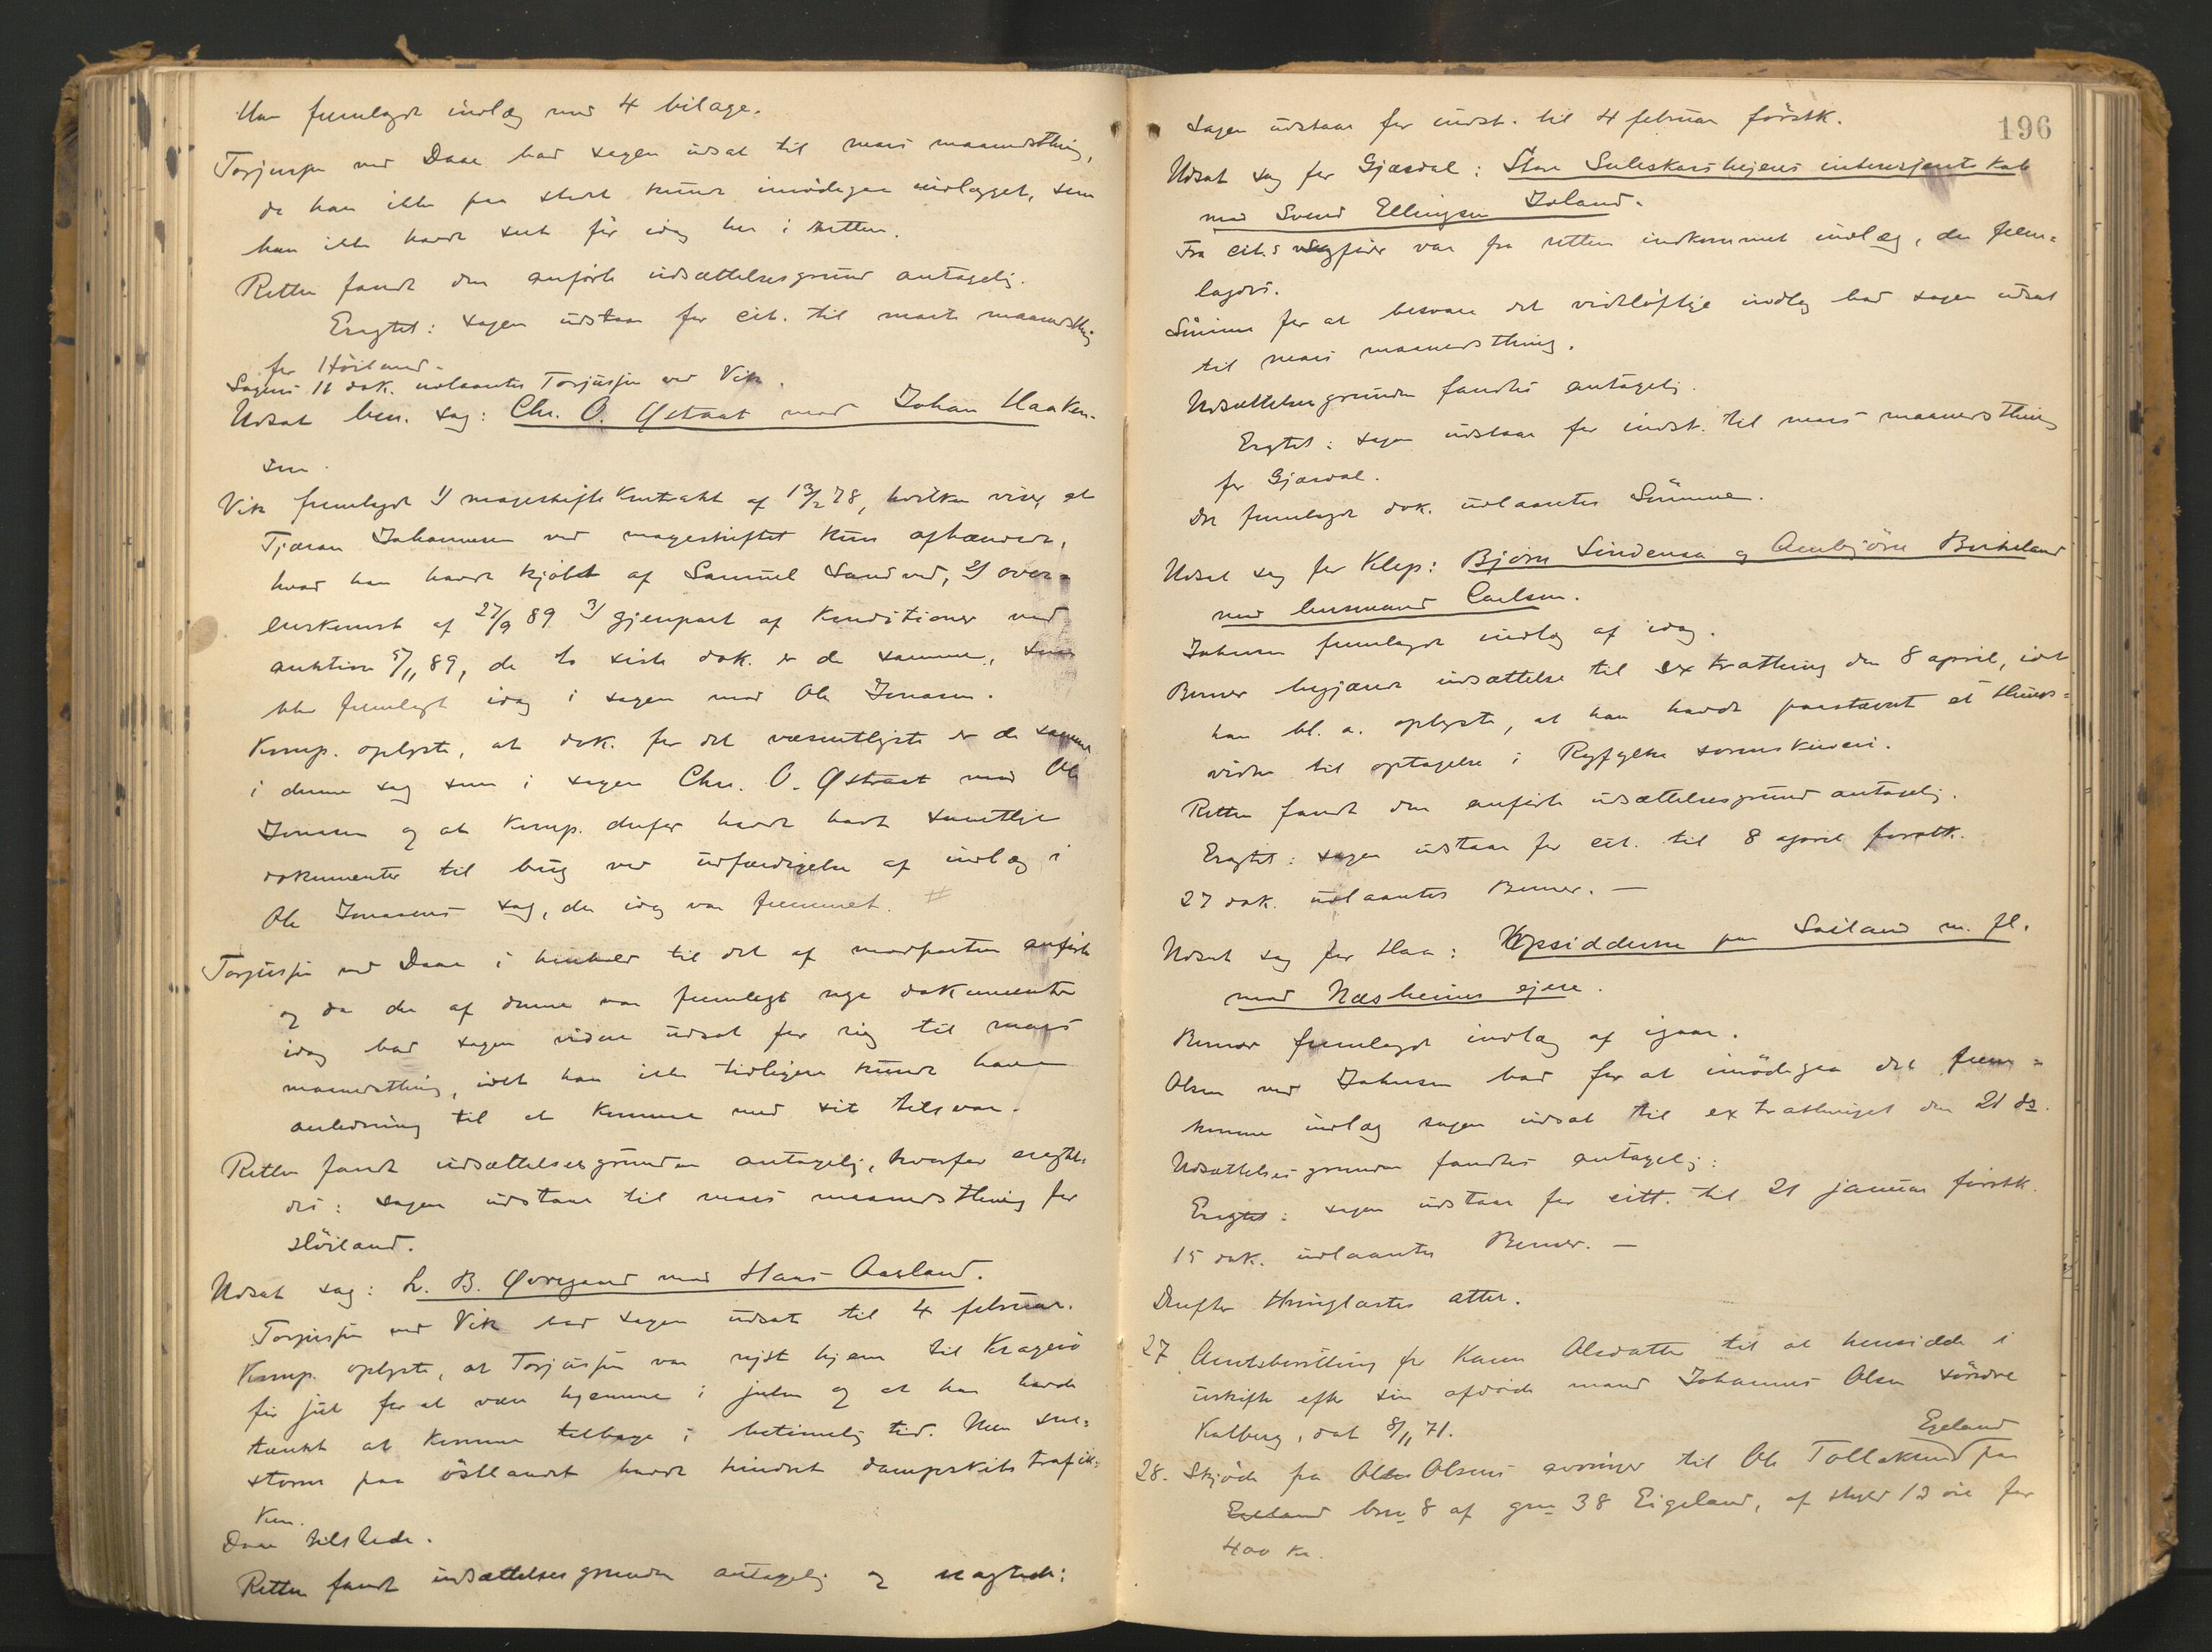 Han fremlagde indlæg med 4 bilage.
Torjusen ved Daae bad sagen udsat til mars maanedsthing,
da han ikke paa stedet kunde imødegaa indlægget, som
han ikke havde seet før idag her i retten.
Retten fandt den anførte udsættelsesgrund antagelig.
Eragtet: sagen udstaar for cit. til marts maanedsthing
for Höiland.
Sagens 11 dok. udlaantes Torjusen ved Vik.
Udsat ben. sag: Chr. O. Østraat mod Johan Haaken-
sen.
Vik fremlagde 1/ mageskifte kontrakt af 13/2 78, hvilken viser, at
Tjæran Johannesen ved mageskiftet kun afhændede,
hvad han havde kjöbt af Samuel Sandved, 2/ over-
enskomst af 27/9 89 3/ gjenpart af konditioner ved
auktion 5/11 89, de to siste dok. er de samme, som
blev fremlagt idag i sagen mod Ole Jonasen.
Komp. oplyste, at dok. for det væsentligste er de samme
i denne sag som i sagen Chr. O. Østraat mod Ole
Jonasen og at komp. derfor havde havt samtlige
dokumenter til brug ved udfærdigelse af indlæg i
Ole Jonasens sag, der idag var fremmet. #
Torjusen ved Daae i henhold til det af modparten anførte
og da der af denne var fremlagt nye dokumenter
idag bad sagen videre udsat for sig til mars
maanedsthing, idet han ikke tidligere kunde have
anledning til at komme med sit tilsvar.
Retten fandt udsættelsesgrunden antagelig, hvorfor eragte-
des: sagen udstaar til mars maanedsthing for
Höiland.
Udsat sag: L. B. Øvregaard mod Hans Aasland.
Torjusen ved Vik bad sagen udsat til 4 februar.
Komp. oplyste, at Torjusen var rejst hjem til Kragerö
för jul for at være hjemme i julen og at han havde
tænkt at komme tilbage i betimelig tid. Men sne-
storm paa östlandet havde hindret dampskibstrafik-
ken.
Daae tilstede.
Retten fandt udsættelsesgrunden antagelig og eragtede:
196
sagen udstaar for indst. til 4 februar förstk.
Udsat sag for Gjæsdal: Store Suleskarshejens interesjentskab
mod Svend Ellingsen Joland.
Fra cit.s sagförer var fra retten indkommet indlæg, der frem-
lagdes.
Sömme for at besvare det vidtlöftige indlæg bad sagen udsat
til mars maanedsthing.
Udsættelsesgrunden fandtes antagelig.
Eragtet: sagen udstaar for indst. til mars maanedsthing
for Gjæsdal.
Det fremlagde dok. udlaantes Sömme.
Udsat sag for Klep: Björn Lindenæs og Aenbjörn Birkeland
mod lensmand Carlsen.
Johnsen fremlagde indlæg af idag.
Berner begjærede udsættelse til extrathing den 8 april, idet
han bl. a. oplyste, at han havde paastævnt et things-
vidne til optagelse i Ryfylke sorenskriveri.
Retten fandt den anförte udsættelsesgrund antagelig.
Eragtet: sagen udstaar for cit. til 8 april førstk.
27 dok. udlaantes Berner. —
Udsat sag for Haa: Opsidderne paa Søiland m. fl.
mod Næsheims ejere.
Berner fremlagde indlæg af igaar.
Olsen ved Johnsen bad for at imödegaa det frem-
komne indlæg sagen udsat til extrathinget den 21 ds.
Udsættelsesgrunden fandtes antagelig:
Eragtet: sagen udstaar for citt. til 21 januar förstk.
15 dok. udlaantes Berner. —
Derefter thinglæstes atter.
27 Amtsbevilling for Karen Olsdatter til at hensidde i
uskifte efter sin afdøde mand Johannes Olsen söndre
Kalberg, dat 8/11 71.
28. Skjöde fra Olsens til Ole Tollaksen Egeland paa
bno 8 af gno 38 Eigeland, af skyld 12 öre for
400 kr.